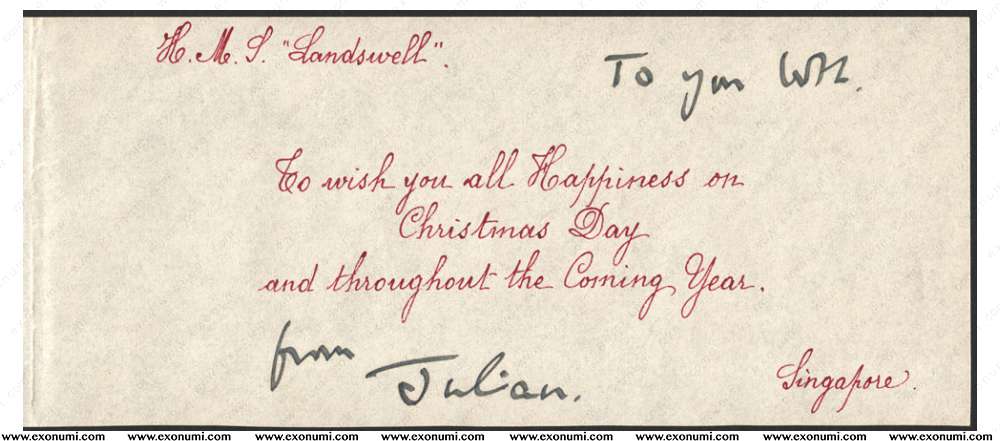 H.M.S. "Landswell".
To you
To wish you all Happiness on
Christmas Day
and throughout the Coming Year.
from Julian.
Singapore.
www.exonumi.com www.exonumi.com www.exonumi.com www.exonumi.com www.exonumi.com www.exonumi.com www.exonumi.com www.exonumi.com